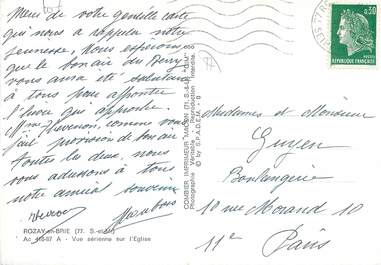 Merci de votre gentille carte
qui nous a rappelé notre
jeunesse. Nous espérons
que le bon air du Berry
vous aura été salutaire
à tous pour affronter
l'hiver qui approche.
comme vous
fait provision de bon air
Toutes les deux, nous
vous adressons à tous
notre amical souvenir
ROZAY-en-BRIE (77. S.-et-M.)
Ac 418-87 A - Vue aérienne sur l'Eglise
COMBIER IMPRIMEUR MACON (71. S.-&-L.) "CIM"
Photographie Véritable - Reproduction Interdite
© by S.P.A.D.E.M.
0,30
POSTES
REPUBLIQUE FRANÇAISE
Mesdames et Monsieur
Guyen
Boulangerie
10 rue Morand 10
11e Paris